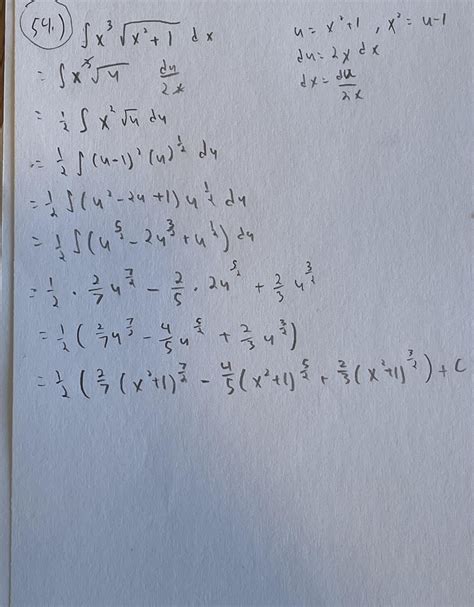 54.) ∫ x³ √(x²+1) dx    u = x²+1 , x² = u-1
du = 2x dx
= ∫ x³ √u du/2x    dx = du/2x
= 1/2 ∫ x² √u du
= 1/2 ∫ (u-1)² (u)^(1/2) du
= 1/2 ∫ (u² - 2u + 1) u^(1/2) du
= 1/2 ∫ (u^(5/2) - 2u^(3/2) + u^(1/2)) du
= 1/2 · 2/7 u^(7/2) - 2/5 · 2u^(5/2) + 2/3 u^(3/2)
= 1/2 (2/7 u^(7/2) - 4/5 u^(5/2) + 2/3 u^(3/2))
= 1/2 (2/7 (x²+1)^(7/2) - 4/5 (x²+1)^(5/2) + 2/3 (x²+1)^(3/2)) + C